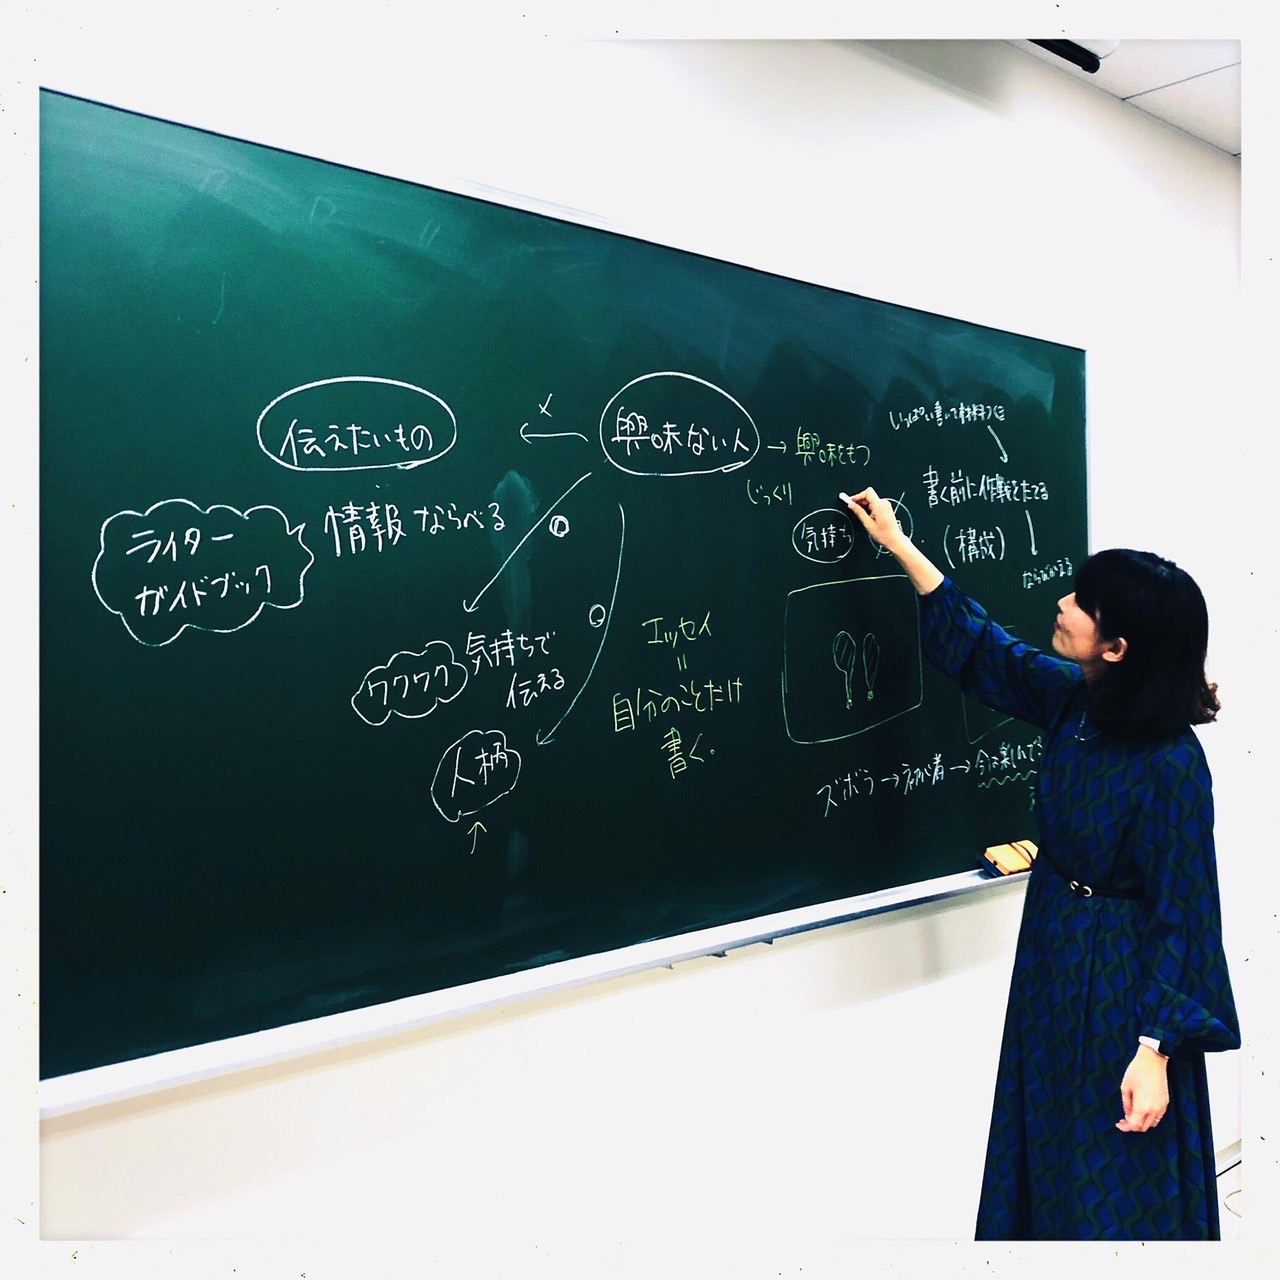 伝えたいもの
×
興味ない人
→ 興味をもつ
情報ならべる
ライター
ガイドブック
ワクワク
気持ちで
伝える
人柄
↑
エッセイ
=
自分のことだけ
書く。
じっくり
気持ち
書く前に作戦をたてる
(構成)
ならびかえる
ズボラ→初心者→今は楽しんでる